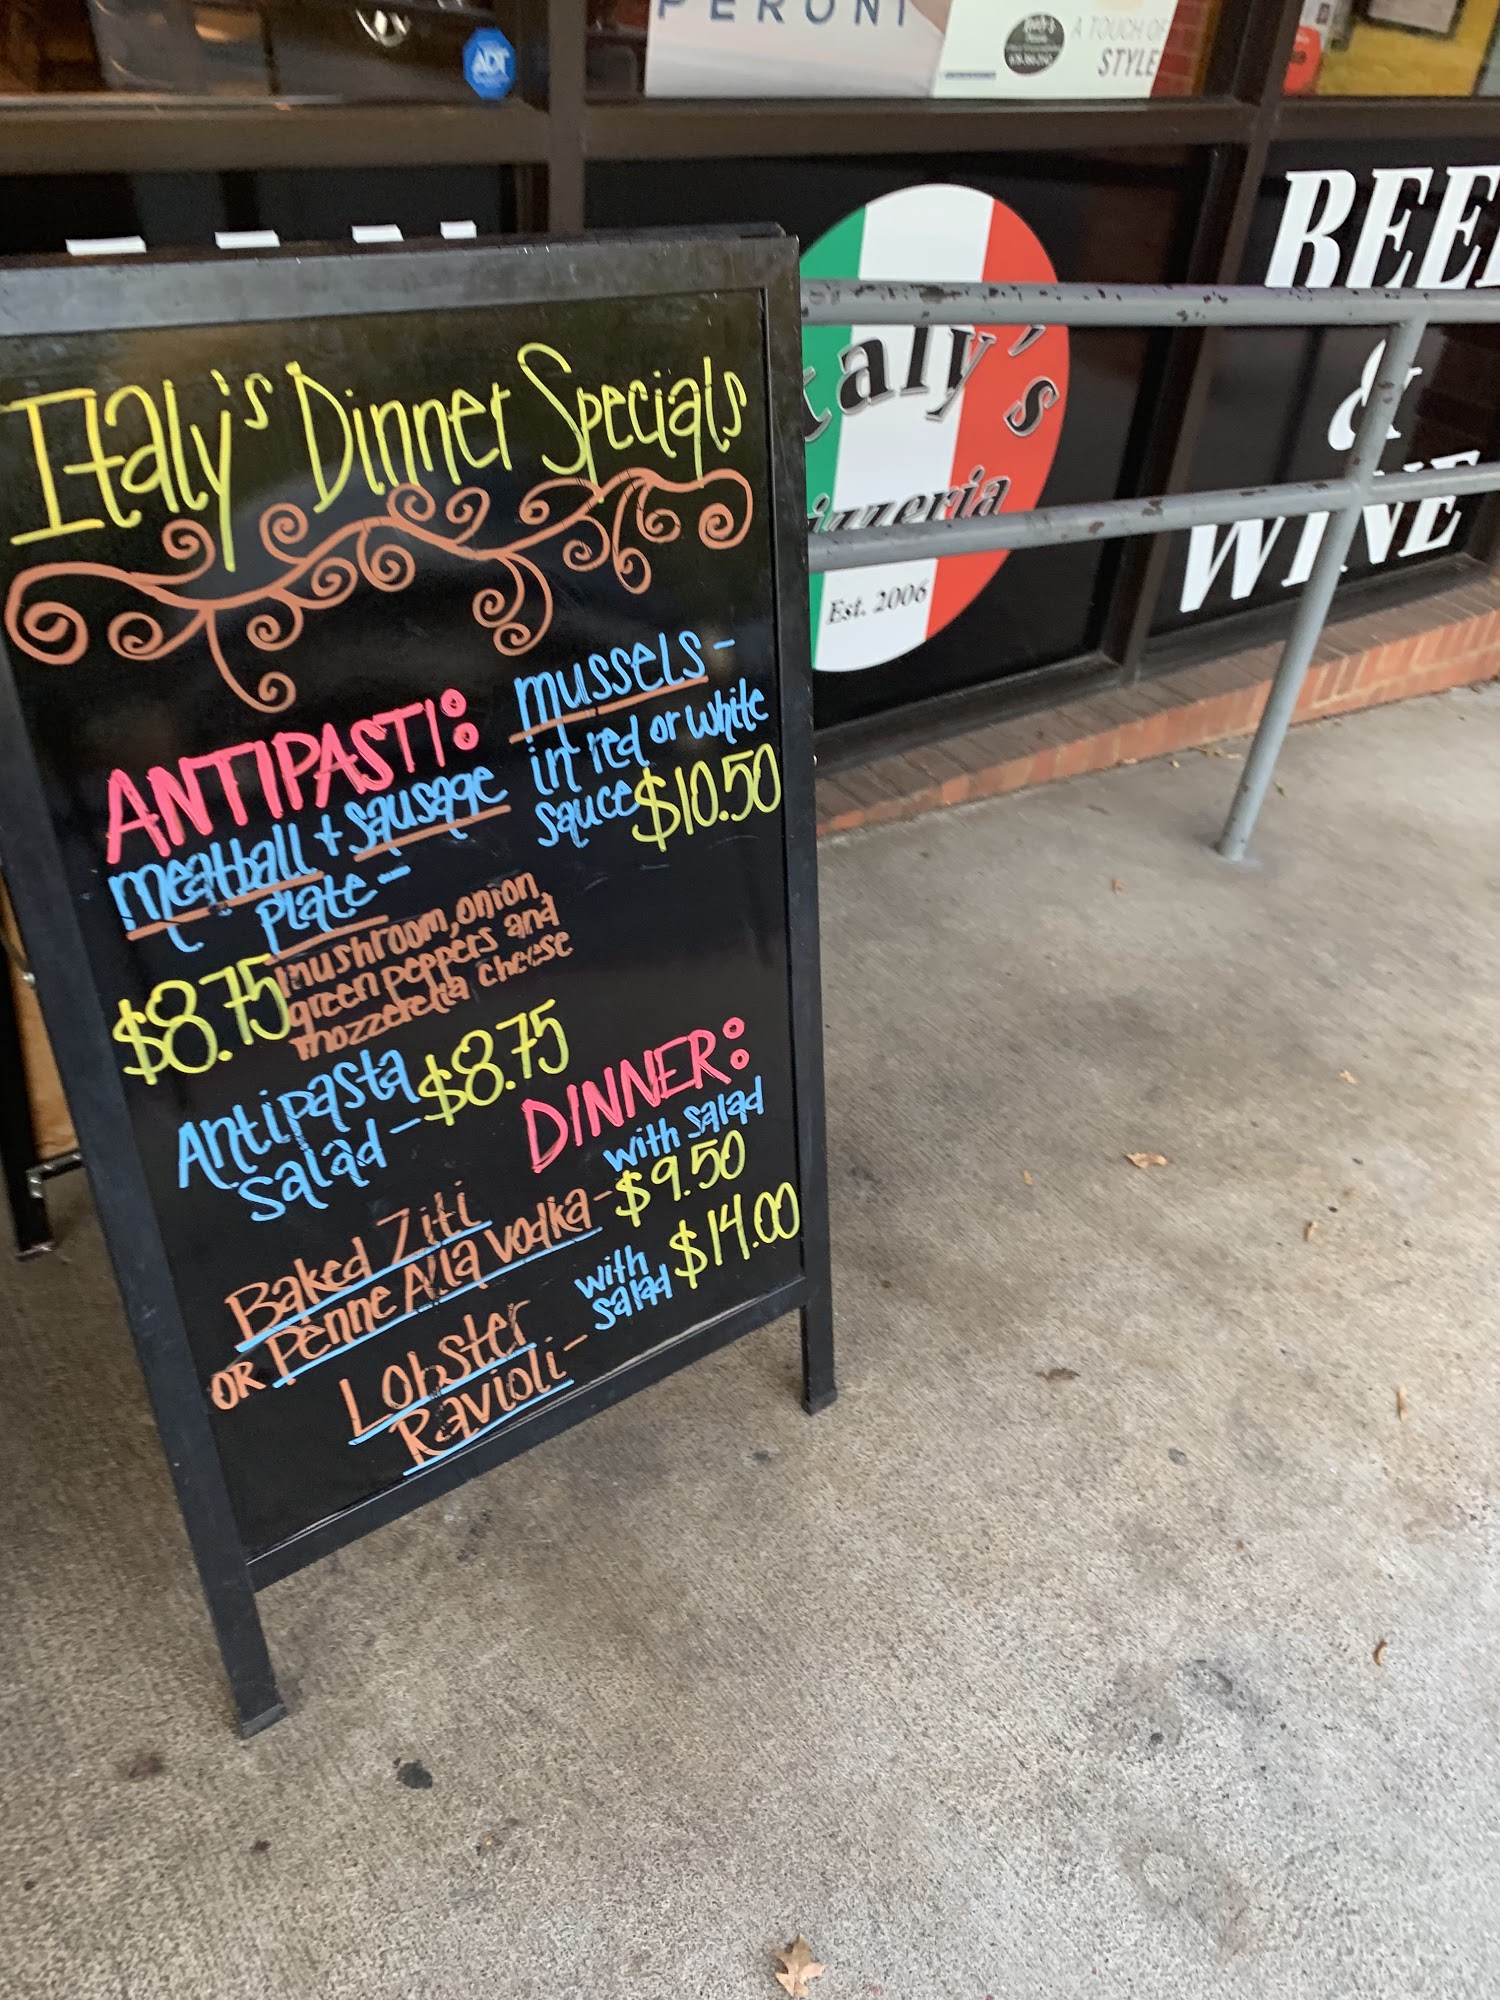 PERONI
A TOUCH OF
STYLE
ADT
Italy's
Pizzeria
Est. 2006
BEER
&
WINE
Italy's Dinner Specials
ANTIPASTI:
meatball + sausage
plate -
$8.75
mushroom, onion,
green peppers and
mozzerella cheese
mussels -
in red or white
sauce $10.50
Antipasta
Salad - $8.75
DINNER:
with salad
Baked Ziti
OR Penne Alla Vodka - $9.50
Lobster
Ravioli -
with
salad $14.00